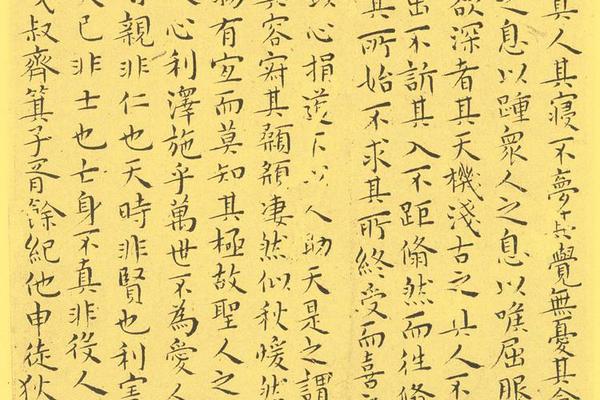 真人其寢不夢其覺無憂其食
之息以踵眾人之息以喉屈服
欲深者其天機淺古之真人不
出不訢其入不距翛然而往翛
其所始不求其所終受而喜
以心捐道不以人助天是之謂
其容寂其顙頯凄然似秋煖然
物有宜而莫知其極故聖人之
人心利澤施乎萬世不為愛人
有親非仁也天時非賢也利害
失己非士也亡身不真非役人
叔齊箕子胥餘紀他申徒狄